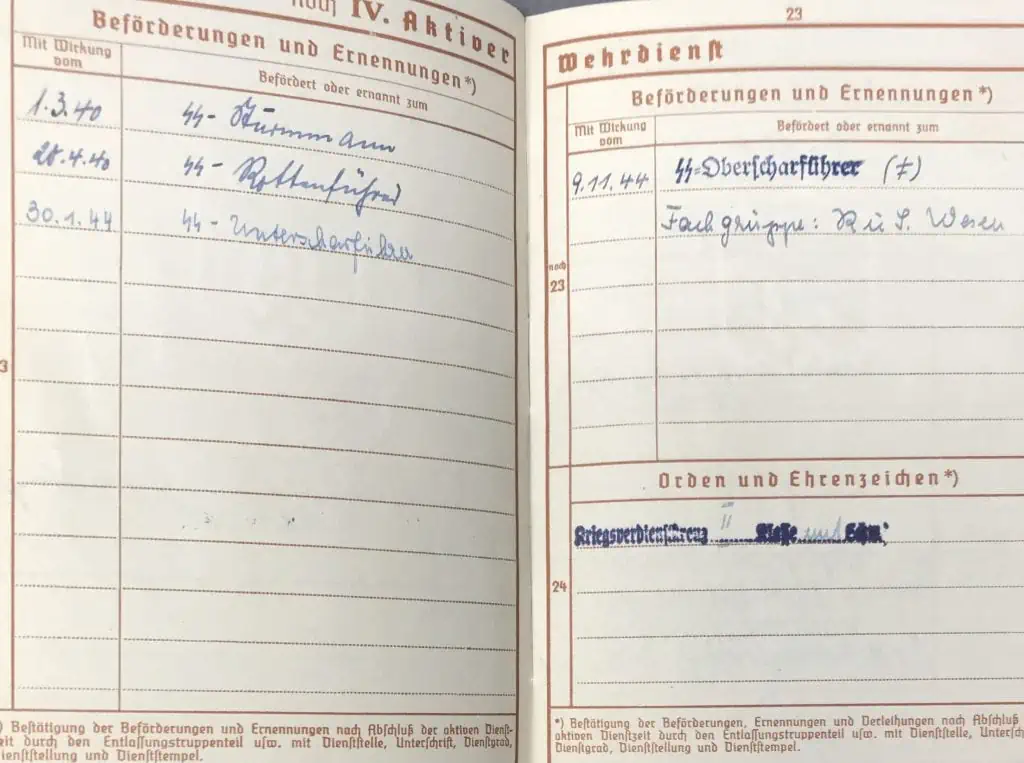 noch IV. Aktiver
Beförderungen und Ernennungen*)
Mit Wirkung vom
Befördert oder ernannt zum
1.3.40 SS- Sturmmann
20.4.40 SS- Rottenführer
30.1.44 SS- Unterscharführer
3
) Bestätigung der Beförderungen und Ernennungen nach Abschluß der aktiven Dienst-
eit durch den Entlassungstruppenteil usw. mit Dienststelle, Unterschrift, Dienstgrad,
ienststellung und Dienststempel.
23
Wehrdienst
Beförderungen und Ernennungen*)
Mit Wirkung vom
Befördert oder ernannt zum
9.11.44 SS-Oberscharführer (F)
Fachgruppe: K u. S. Wesen
noch
23
Orden und Ehrenzeichen*)
Kriegsverdienstkreuz II Klasse und Schw.
24
*) Bestätigung der Beförderungen, Ernennungen und Verleihungen nach Abschluß
aktiven Dienstzeit durch den Entlassungstruppenteil usw. mit Dienststelle, Untersch
Dienstgrad, Dienststellung und Dienststempel.